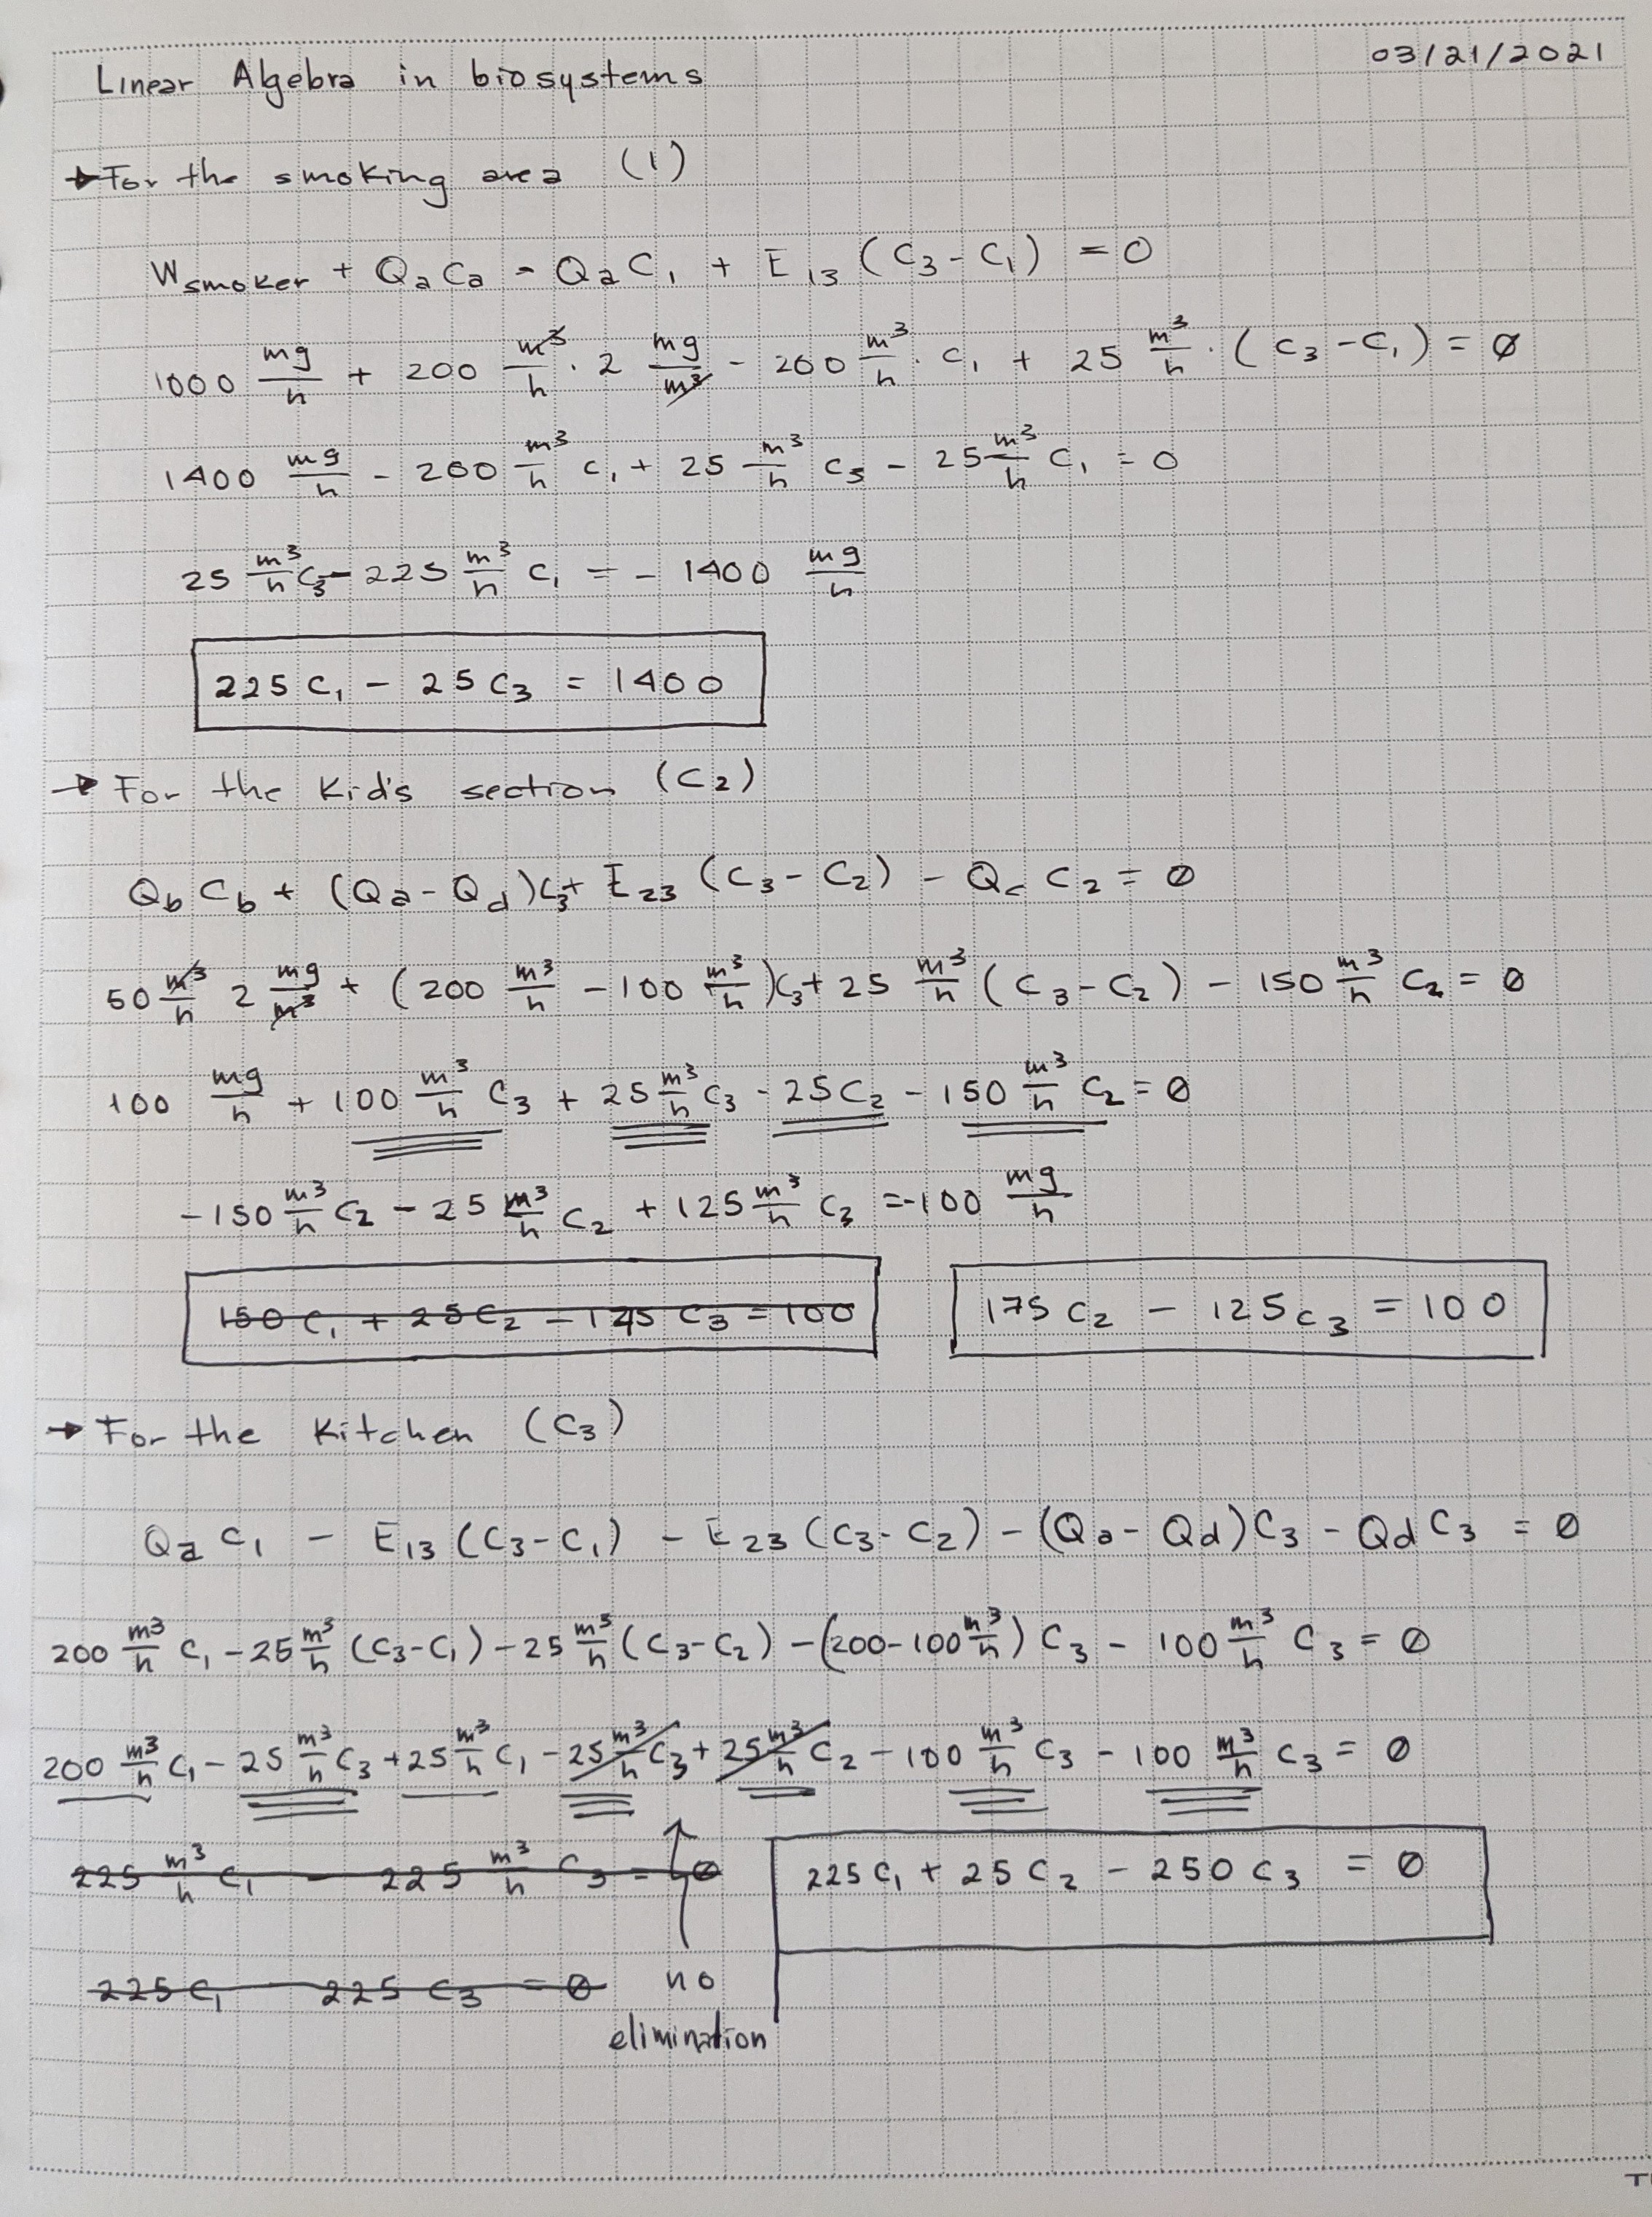 03/21/2021
Linear Algebra in biosystems
→ For the smoking area (1)
W smoker + Qa Ca - Qa C₁ + E₁₃ (C₃ - C₁) = 0
1000 mg/h + 200 m³/h · 2 mg/m³ - 200 m³/h · C₁ + 25 m³/h · (C₃ - C₁) = Ø
1400 mg/h - 200 m³/h C₁ + 25 m³/h C₃ - 25 m³/h C₁ = 0
25 m³/h C₃ - 225 m³/h C₁ = - 1400 mg/h
225 C₁ - 25 C₃ = 1400
→ For the Kid's section (C₂)
Qb Cb + (Qa - Qd)C₃ + E₂₃ (C₃ - C₂) - Qc C₂ = Ø
50 m³/h 2 mg/m³ + (200 m³/h - 100 m³/h)C₃ + 25 m³/h (C₃ - C₂) - 150 m³/h C₂ = Ø
100 mg/h + 100 m³/h C₃ + 25 m³/h C₃ - 25C₂ - 150 m³/h C₂ = Ø
-150 m³/h C₂ - 25 m³/h C₂ + 125 m³/h C₃ = -100 mg/h
150 C₁ + 25C₂ - 125 C₃ = 100 175 C₂ - 125 C₃ = 100
→ For the Kitchen (C₃)
Qa C₁ - E₁₃ (C₃ - C₁) - E₂₃ (C₃ - C₂) - (Qa - Qd) C₃ - Qd C₃ = Ø
200 m³/h C₁ - 25 m³/h (C₃ - C₁) - 25 m³/h (C₃ - C₂) - (200 - 100 m³/h) C₃ - 100 m³/h C₃ = Ø
200 m³/h C₁ - 25 m³/h C₃ + 25 m³/h C₁ - 25 m³/h C₃ + 25 m³/h C₂ - 100 m³/h C₃ - 100 m³/h C₃ = Ø
225 m³/h C₁ - 225 m³/h C₃ = Ø 225 C₁ + 25 C₂ - 250 C₃ = Ø
225 C₁ - 225 C₃ = Ø no
elimination